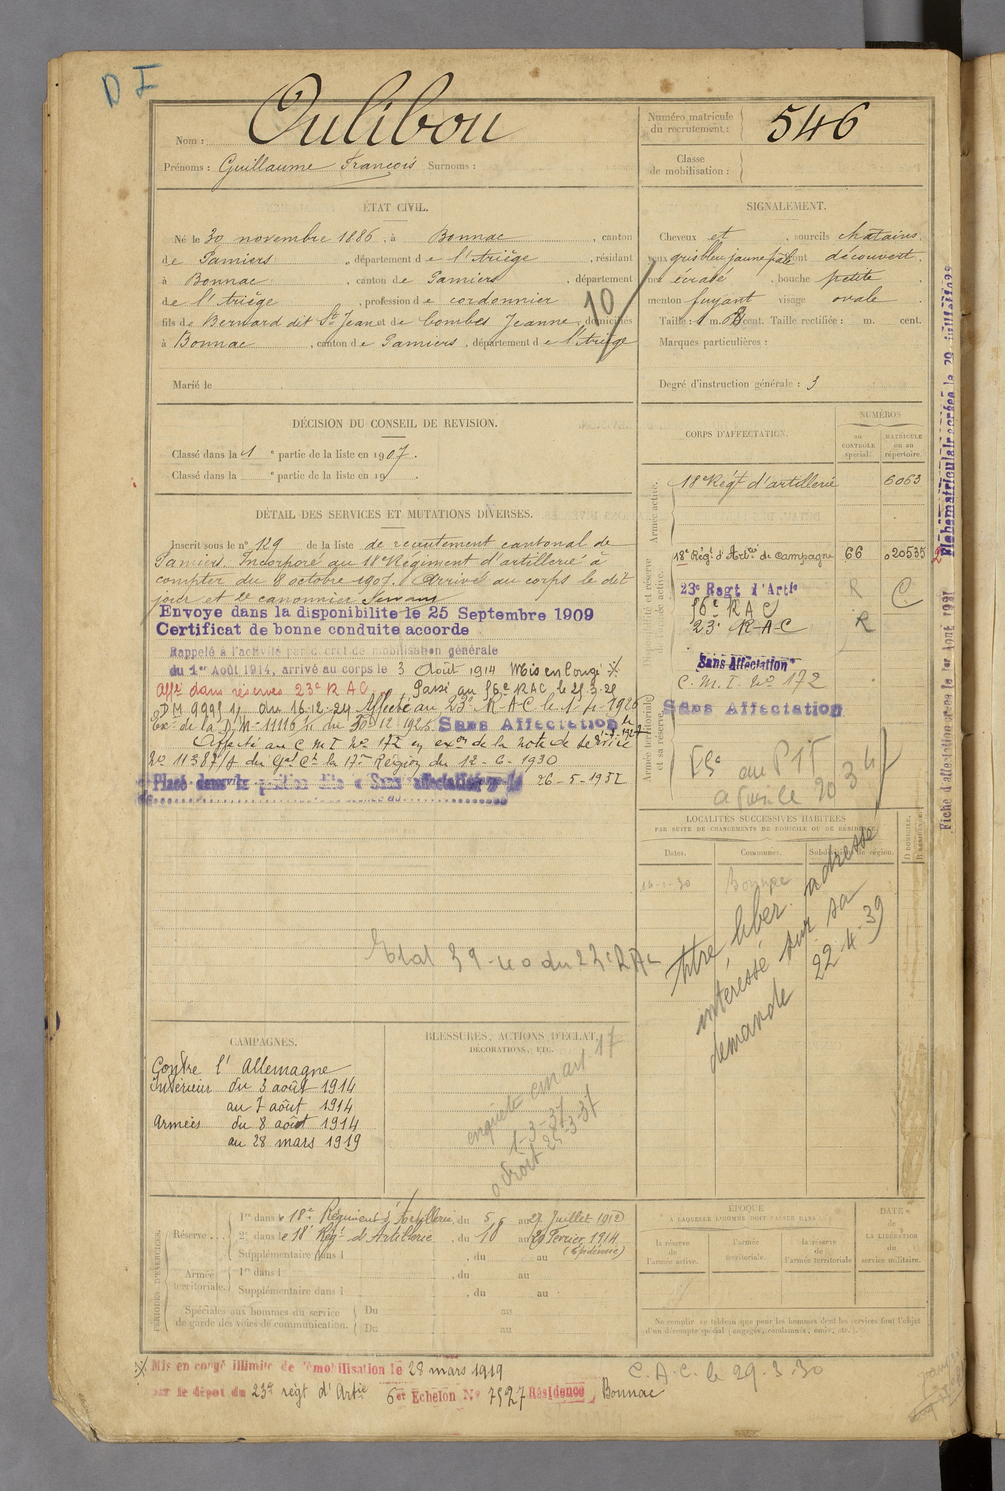 D I
Nom : Oulibou
Prénoms : Guillaume François Surnoms :
Numéro matricule du recrutement : 546
Classe de mobilisation :
ÉTAT CIVIL.
Né le 30 novembre 1886, à Bonnac, canton
de Pamiers, département de l'Ariège, résidant
à Bonnac, canton de Pamiers, département
de l'Ariège, profession de cordonnier
fils de Bernard dit St Jean et de Combes Jeanne, domiciliés
à Bonnac, canton de Pamiers, département de l'Ariège
10
Marié le
SIGNALEMENT.
Cheveux et , sourcils chatains
yeux gris bleu jaune pâle front découvert
nez écrasé, bouche petite
menton fuyant visage ovale
Taille : 1 m. 68 cent. Taille rectifiée : m. cent.
Marques particulières :
Degré d'instruction générale : 3
DÉCISION DU CONSEIL DE REVISION.
Classé dans la 1e partie de la liste en 1907.
Classé dans la e partie de la liste en 19
DÉTAIL DES SERVICES ET MUTATIONS DIVERSES.
Inscrit sous le n° 129 de la liste de recrutement cantonal de
Pamiers. Incorporé au 18e Régiment d'artillerie à
compter du 8 octobre 1907. Arrivé au corps le dit
jour et 2e canonnier servant
Envoye dans la disponibilite le 25 Septembre 1909
Certificat de bonne conduite accorde
Rappelé à l'activité par décret de mobilisation générale
du 1er Août 1914, arrivé au corps le 3 Août 1914 Mis en congé
Affé dans réserves 23e RAC. Passé au 56e RAC, le 25.3.28
DM 9991 1/ du 16.12.24 Affecté au 23e RAC le
Exon de la DM 11116 du 30.12.1925 Sans Affectation
Affecté au C M I No 172 en exon de la note de service
No 11387/A du Gal Ct la 17e Région du 12-6-1930
Placé dans la position dite « Sans affectation » le 26-5-1932
CORPS D'AFFECTATION.
NUMÉROS
au contrôle spécial.
matricule ou au répertoire.
Armée active.
18e Régt d'artillerie 6063
Disponibilité et réserve de l'armée active.
18e Régt d'Artie de Campagne 66 020535
23e Regt d'Artie R C
56e RAC
23e RAC R
Sans Affectation
C.M.I. No 172
Armée territoriale et sa réserve.
Sans Affectation
Fiche d'affectation créée le 1er Août 1921
LOCALITÉS SUCCESSIVES HABITÉES
PAR SUITE DE CHANGEMENTS DE DOMICILE OU DE RÉSIDENCE.
Dates. Communes. Subdivision de région. D DOMICILE. R RÉSIDENCE.
Bonnac
Titre liber. adressé
intéressé sur sa
demande 22-4-39
Etat 39-40 du 23e RAC
CAMPAGNES.
Contre l'Allemagne
Intérieur du 3 août 1914
au 7 août 1914
Armées du 8 août 1914
au 28 mars 1919
BLESSURES, ACTIONS D'ÉCLAT,
DÉCORATIONS, ETC.
enquete em art 17
1-3-37
a droit 25-3-37
PÉRIODES D'EXERCICES.
Réserve
1re dans le 18e Régiment d'Artillerie, du 5 au 27 Juillet 1912
2e dans le 18e Régt d'Artillerie, du 10 au 20 Février 1914
(Epidémie)
Supplémentaire dans l , du au
Armée territoriale.
1re dans l , du au
Supplémentaire dans l , du au
Spéciales aux hommes du service de garde des voies de communication.
Du au
Du au
ÉPOQUE
À LAQUELLE L'HOMME DOIT PASSER DANS :
la réserve de l'armée active.
l'armée territoriale.
la réserve de l'armée territoriale
DATE de LA LIBÉRATION du service militaire.
Ne remplir ce tableau que pour les hommes dont les services font l'objet
d'un décompte spécial (engagés, condamnés, omis, etc.).
Mis en congé illimité de démobilisation le 28 mars 1919
par le dépot du 23e regt d'Artie 6e Echelon No 7527 Résidence Bonnac
C.A.C. le 29.3.30